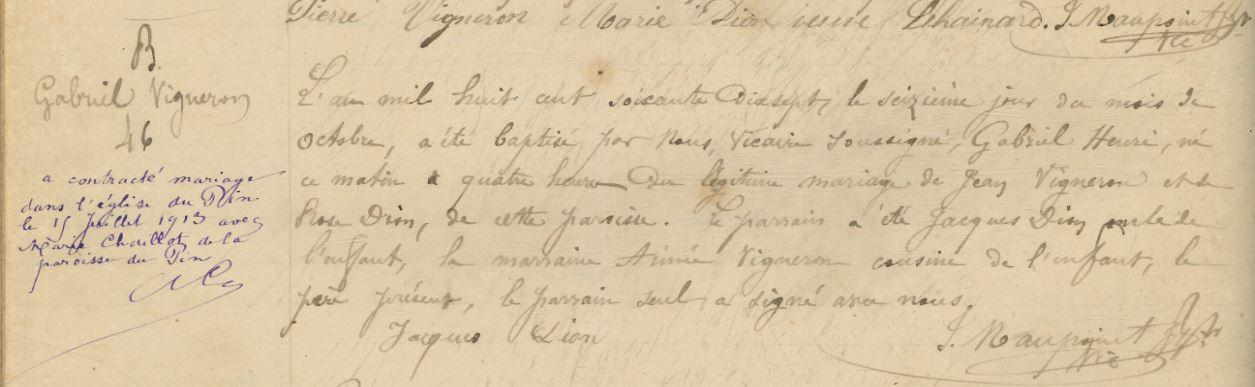 Pierre Vigneron, Marie Dion veuve Lehainard. J. Maupoint
Vic
B.
Gabriel Vigneron
46
a contracté mariage
dans l'église du Pin
le 15 juillet 1913 avec
Marie Chaillot de la
paroisse du Pin
L'an mil huit cent soixante dixsept, le seizième jour du mois de
Octobre, a été baptisé par Nous, Vicaire soussigné, Gabriel Henri, né
ce matin à quatre heures du légitime mariage de Jean Vigneron et de
Rose Dion, de cette paroisse. Le parrain a été Jacques Dion oncle de
l'enfant, la marraine Aimée Vigneron cousine de l'enfant, le
père présent, le parrain seul a signé avec nous.
Jacques Dion
J. Maupoint
Vic